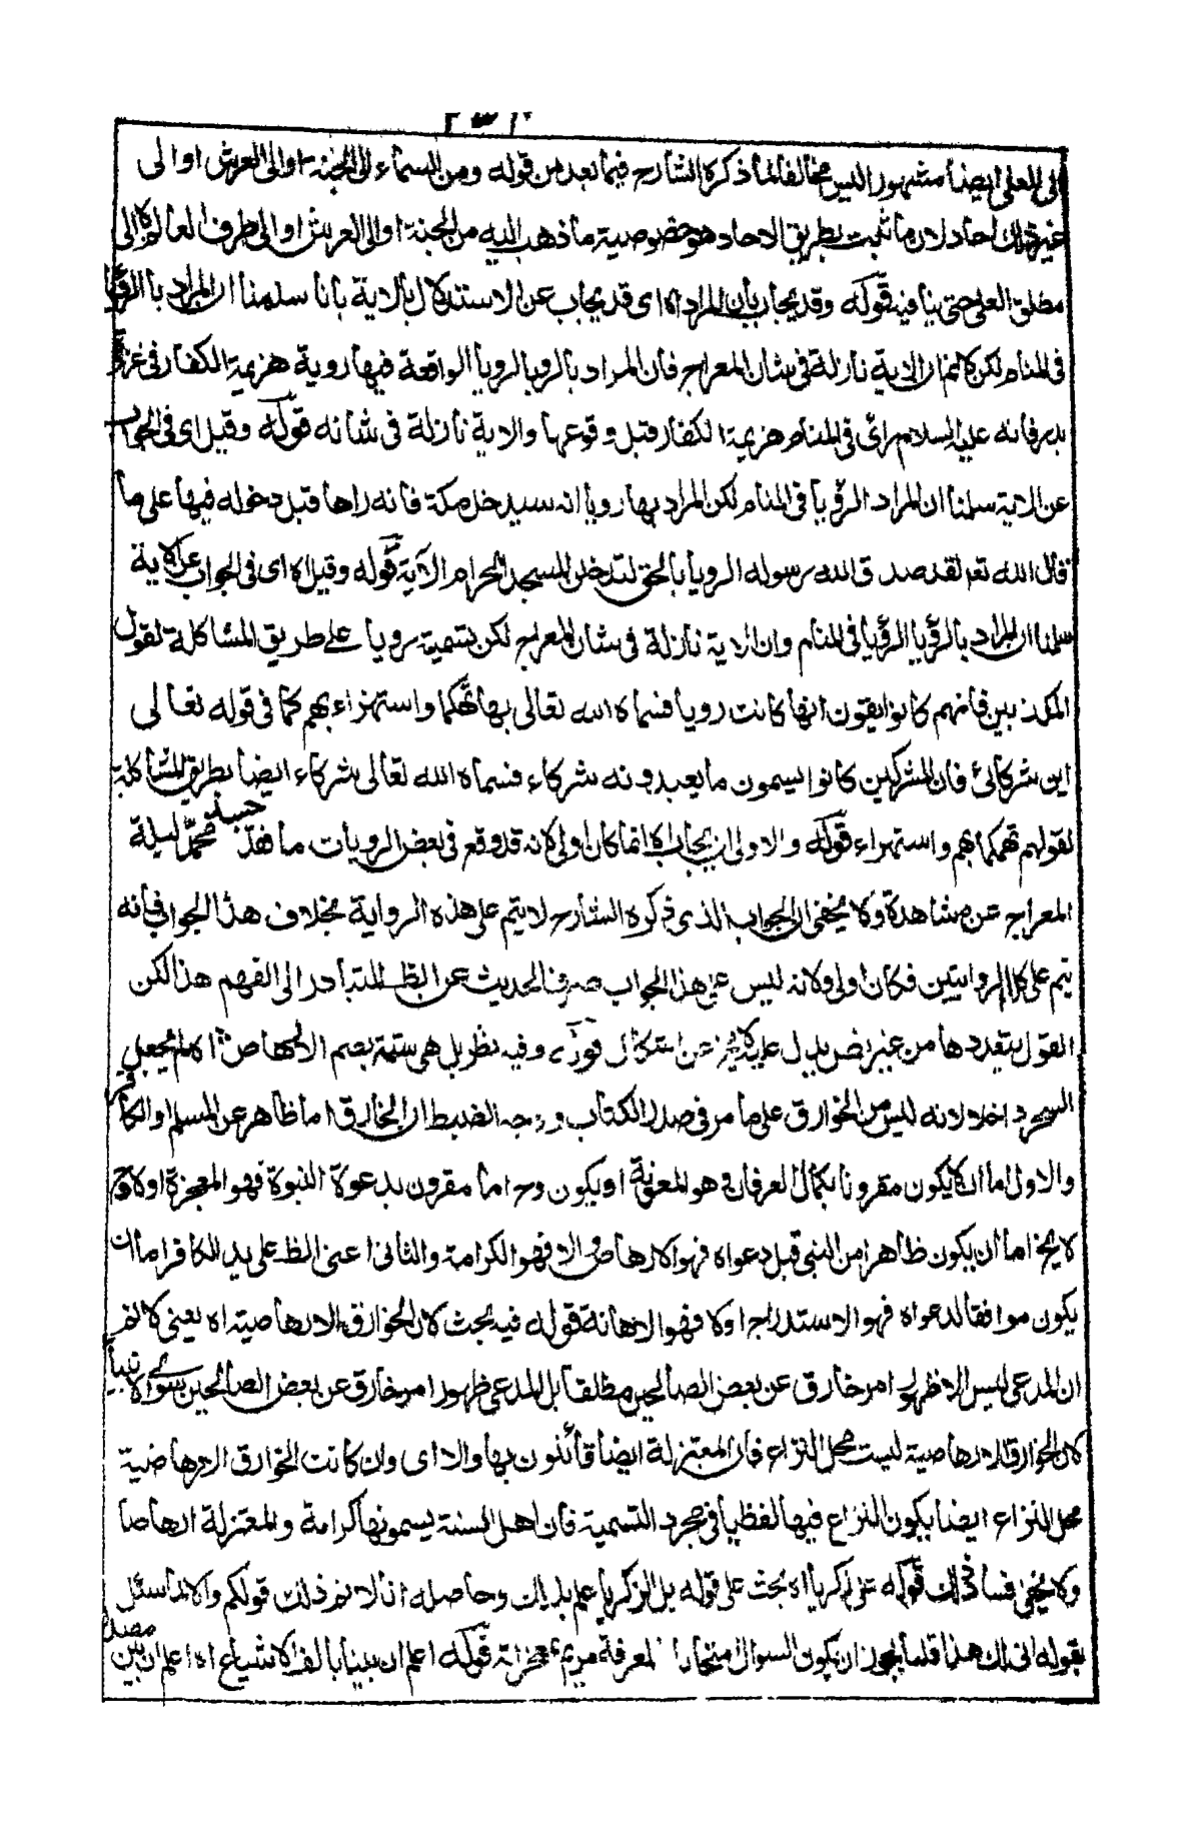 الى المعلى ايضا مشهور ليس مخالفا لما ذكره الشارح فيما بعد من قوله ومن السماء الى الجنة او الى العرش او الى
غير ذلك احاد لان ما ثبت بطريق الاحاد هو خصوصية ما ذهب اليه من الجنة او الى العرش او الى طرف العالم لا الى
مطلق العلى حتى ينافيه قوله وقد يجاب بان المراد اه اى قد يجاب عن الاستدلال بالاية بانا سلمنا ان المراد بالرؤيا
فى المنام لكن لانم ان الاية نازلة فى شان المعراج فان المراد بالرويا الرويا الواقعة فيها روية هزيمة الكفار فى غزوة
بدر فانه عليه السلام رائ فى المنام هزيمة الكفار قبل وقوعها والاية نازلة فى شانه قوله وقيل اى فى الجواب
عن الاية سلمنا ان المراد الرؤيا فى المنام لكن المراد بها رويا انه سيدخل مكة فانه راها قبل دخوله فيها على ما
قال الله تعر لقد صدق الله رسوله الرويا بالحق لتدخلن المسجد الحرام الآية قوله وقيل اه اى فى الجواب عن الاية
سلمنا ان المراد بالرؤيا الرؤيا فى المنام وان الاية نازلة فى شان المعراج لكن تسمية رويا على طريق المشاكلة لقول
المكذبين فانهم كانوا يقون انها كانت رويا فسماه الله تعالى بها تهكما واستهزاء بهم كما فى قوله تعالى
اين شركائ فان المشركين كانوا يسمون ما يعبدونه شركاء فسماه الله تعالى شركاء ايضا بطريق المشاكلة
لقولهم تهكما بهم واستهزاء قوله والاولى ان يجاب اه انما كان اولى لانه قد وقع فى بعض الرويات ما فقد جسد محمد ليلة
المعراج عن مشاهدة ولا يخفى ان الجواب الذى ذكره الشارح لا يتم على هذه الرواية بخلاف هذا الجواب فانه
يتم على كلا الروايتين فكان اولى ولانه ليس على هذا الجواب صرف الحديث عن الظ المتبادر الى الفهم هذا لكن
القول بتعددها من غير نص يدل عليه لا يخ عن اشكال قوله وفيه نظر بل هى ستة بضم الارهاص اه لم يجعل
السحر داخلا لانه ليس من الخوارق على ما مر فى صدر الكتاب ووجه الضبط ان الخارق اما ظاهر عن المسلم او الكافر
والاول اما ان لا يكون مقرونا بكمال العرفان فهو المعونة او يكون وح اما مقرون بدعوة النبوة فهو المعجزة اولا وح
لا يخ اما ان يكون ظاهرا من النبى قبل دعواه فهو الارهاص والا فهو الكرامة والثانى اعنى الظ على يد الكافر اما ان
يكون موافقا لدعواه فهو الاستدراج اولا فهو الاهانة قوله فيه بحث لان الخوارق الارهاصية اه يعنى لانم
ان المدعى ليس الا ظهور امر خارق عن بعض الصالحين مطلقا بل المدعى ظهور امر خارق عن بعض الصالحين سوى الانبياء
لان الخوارق الارهاصية ليست محل النزاع فان المعتزلة ايضا قائلون بها والا اى وان كانت الخوارق الارهاصية
محل النزاع ايضا يكون النزاع فيها لفظيا فى مجرد التسمية فان اهل السنة يسمونها كرامة والمعتزلة ارهاصا
ولا يخفى فساد ذلك قوله على زكريا اه بحث على قوله بل لزكريا علم بذلك وحاصله انا لانم ذلك قولكم والا لما سئل
بقوله انى لك هذا قلنا يجوز ان يكون السوال امتحانا لمعرفة مريم قوله اعلم ان بينا بالف الاشباع اه اعلم ان بين مصدر